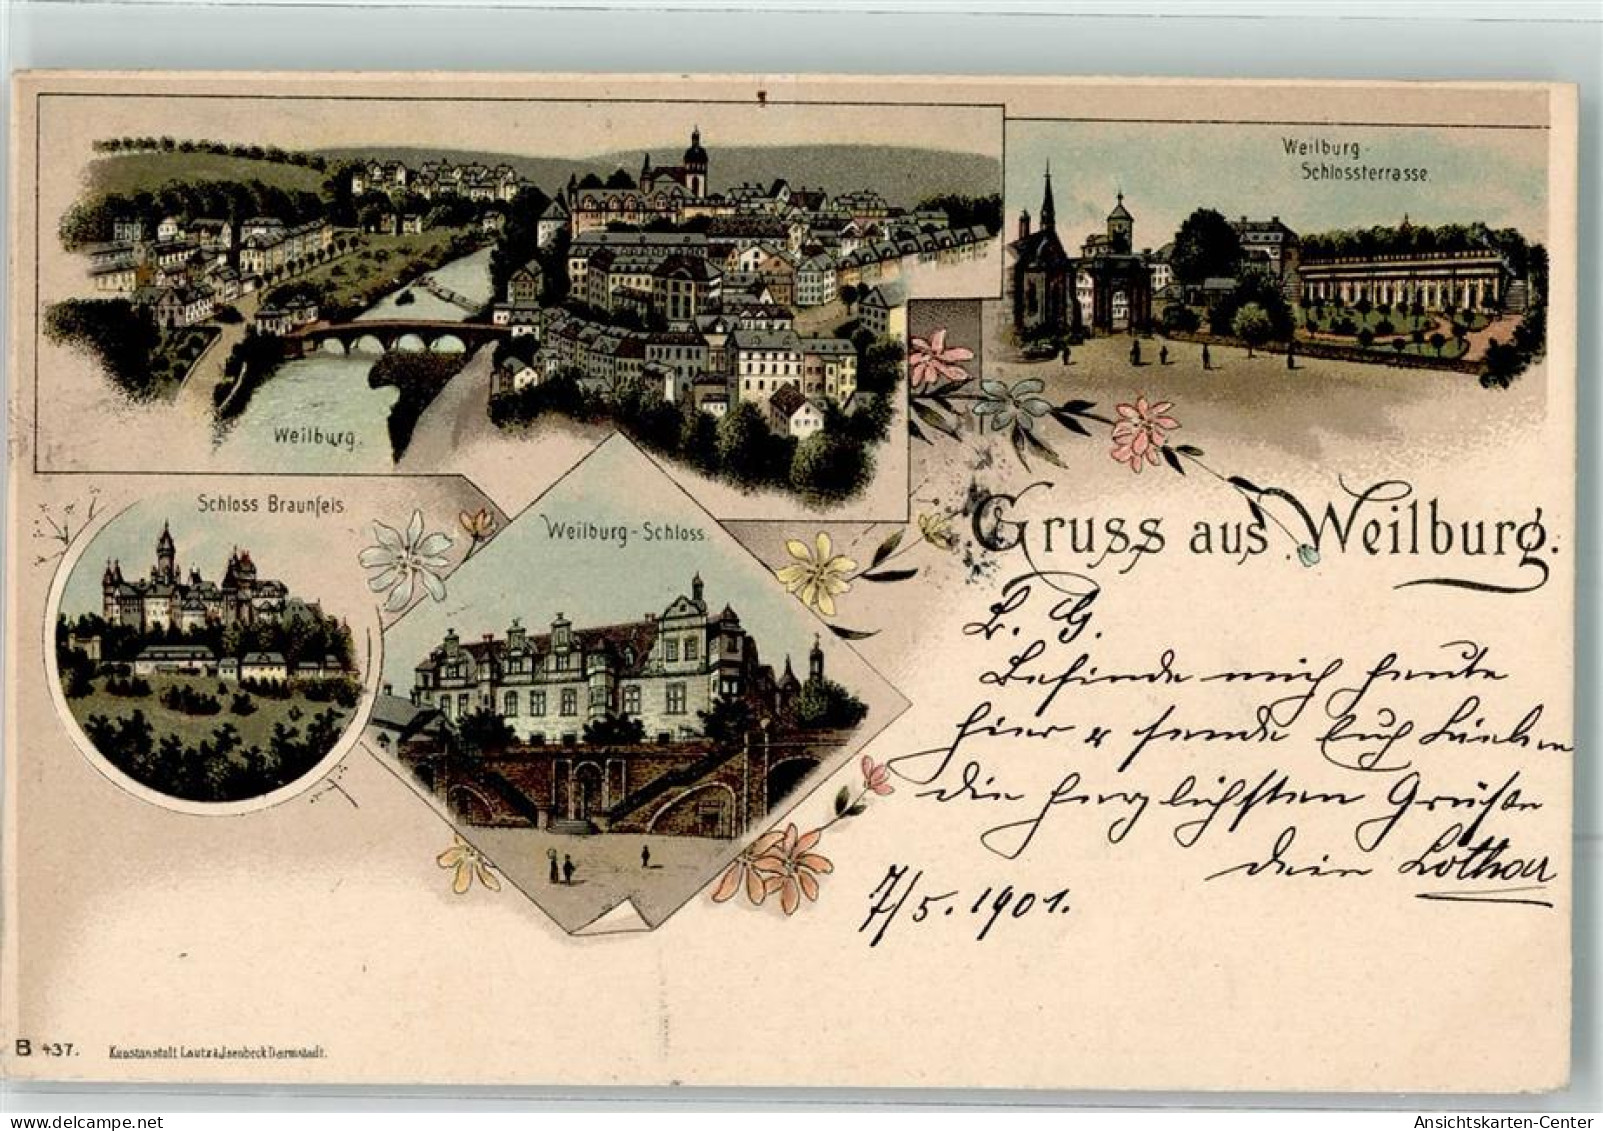 Weilburg.
Weilburg-
Schlossterrasse.
Schloss Braunfels
Weilburg-Schloss.
Gruss aus Weilburg.
L. G.
Befinde mich heute
hier u sende Euch Lieben
die herzlichsten Grüße
dein Lothar
7/5. 1901.
B 437. Kunstanstalt Lautz & Jsenbeck Darmstadt.
Ansichtskarten-Center